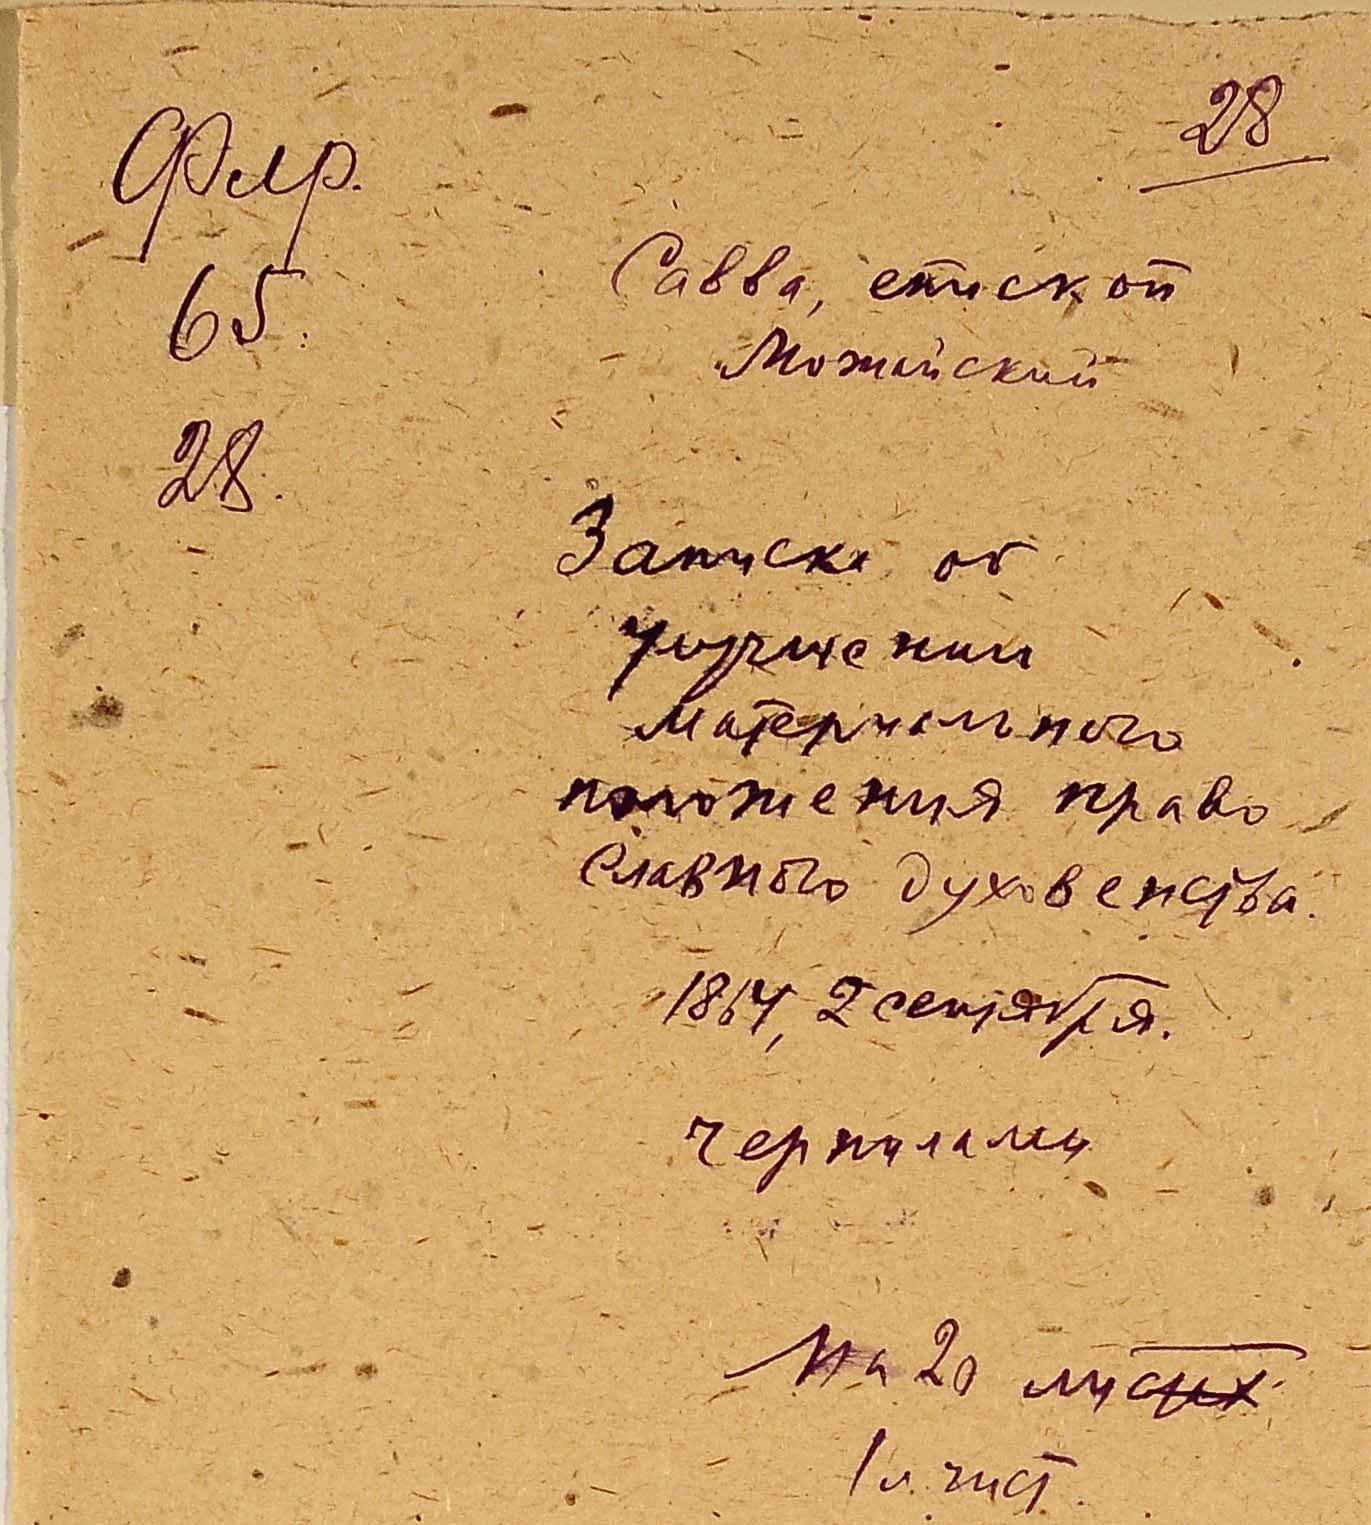 28
Филар.
65.
28.
Савва, епископ
Можайский
Записка об
улучшении
материального
положения право
славного духовенства.
1864, 2 сентября.
чернилами
На 20 листах
1 л. чист.